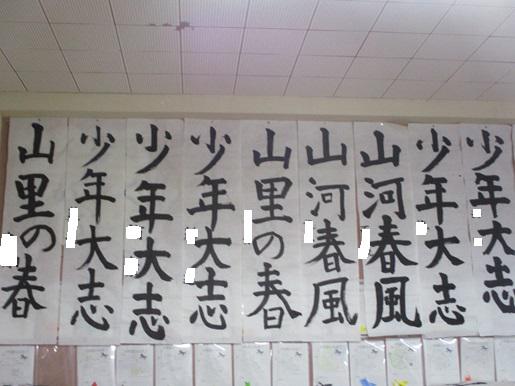 山里の春
少年大志
少年大志
少年大志
山里の春
山河春風
山河春風
少年大志
少年大志